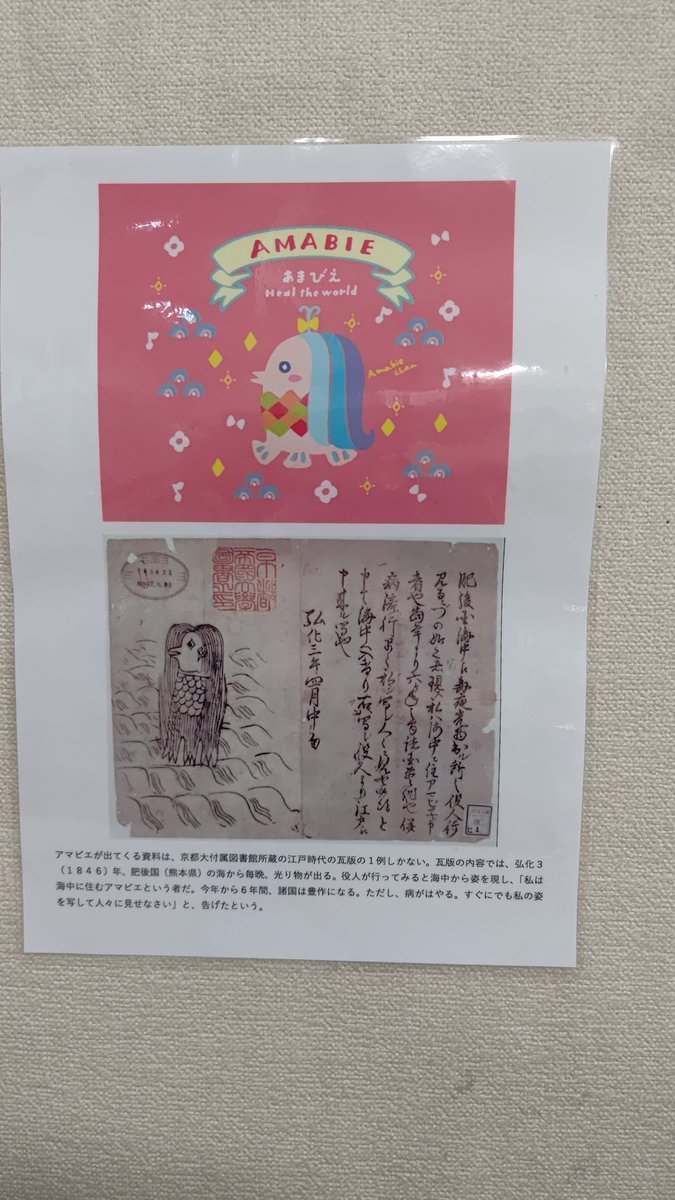 AMABIE
あまびえ
Heal the world
Amabie
chan
肥後国海中え毎夜光物出ル所之役人行
見るニづの如之者現ス私ハ海中ニ住アマビエト申
者也当年より六ヶ年之間諸国豊作也併
病流行早々私ヲ写シ人々ニ見せ候得と
申て海中へ入けり右写シ役人より江戸え
申来ル写也
弘化三年四月中旬
アマビエが出てくる資料は、京都大付属図書館所蔵の江戸時代の瓦版の1例しかない。瓦版の内容では、弘化3
(1846)年、肥後国(熊本県)の海から毎晩、光り物が出る。役人が行ってみると海中から姿を現し、「私は
海中に住むアマビエという者だ。今年から6年間、諸国は豊作になる。ただし、病がはやる。すぐにでも私の姿
を写して人々に見せなさい」と、告げたという。